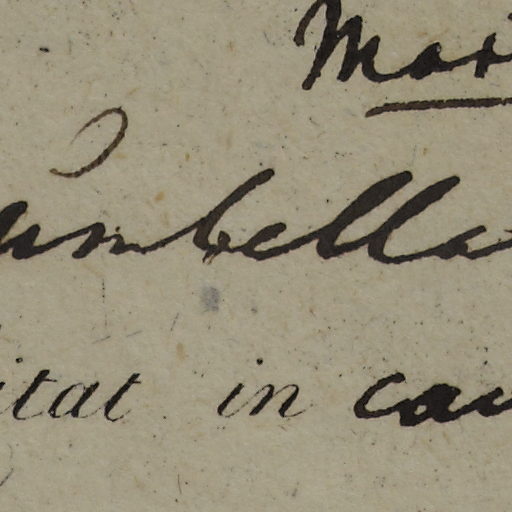 Mar
umbella
itat in cau